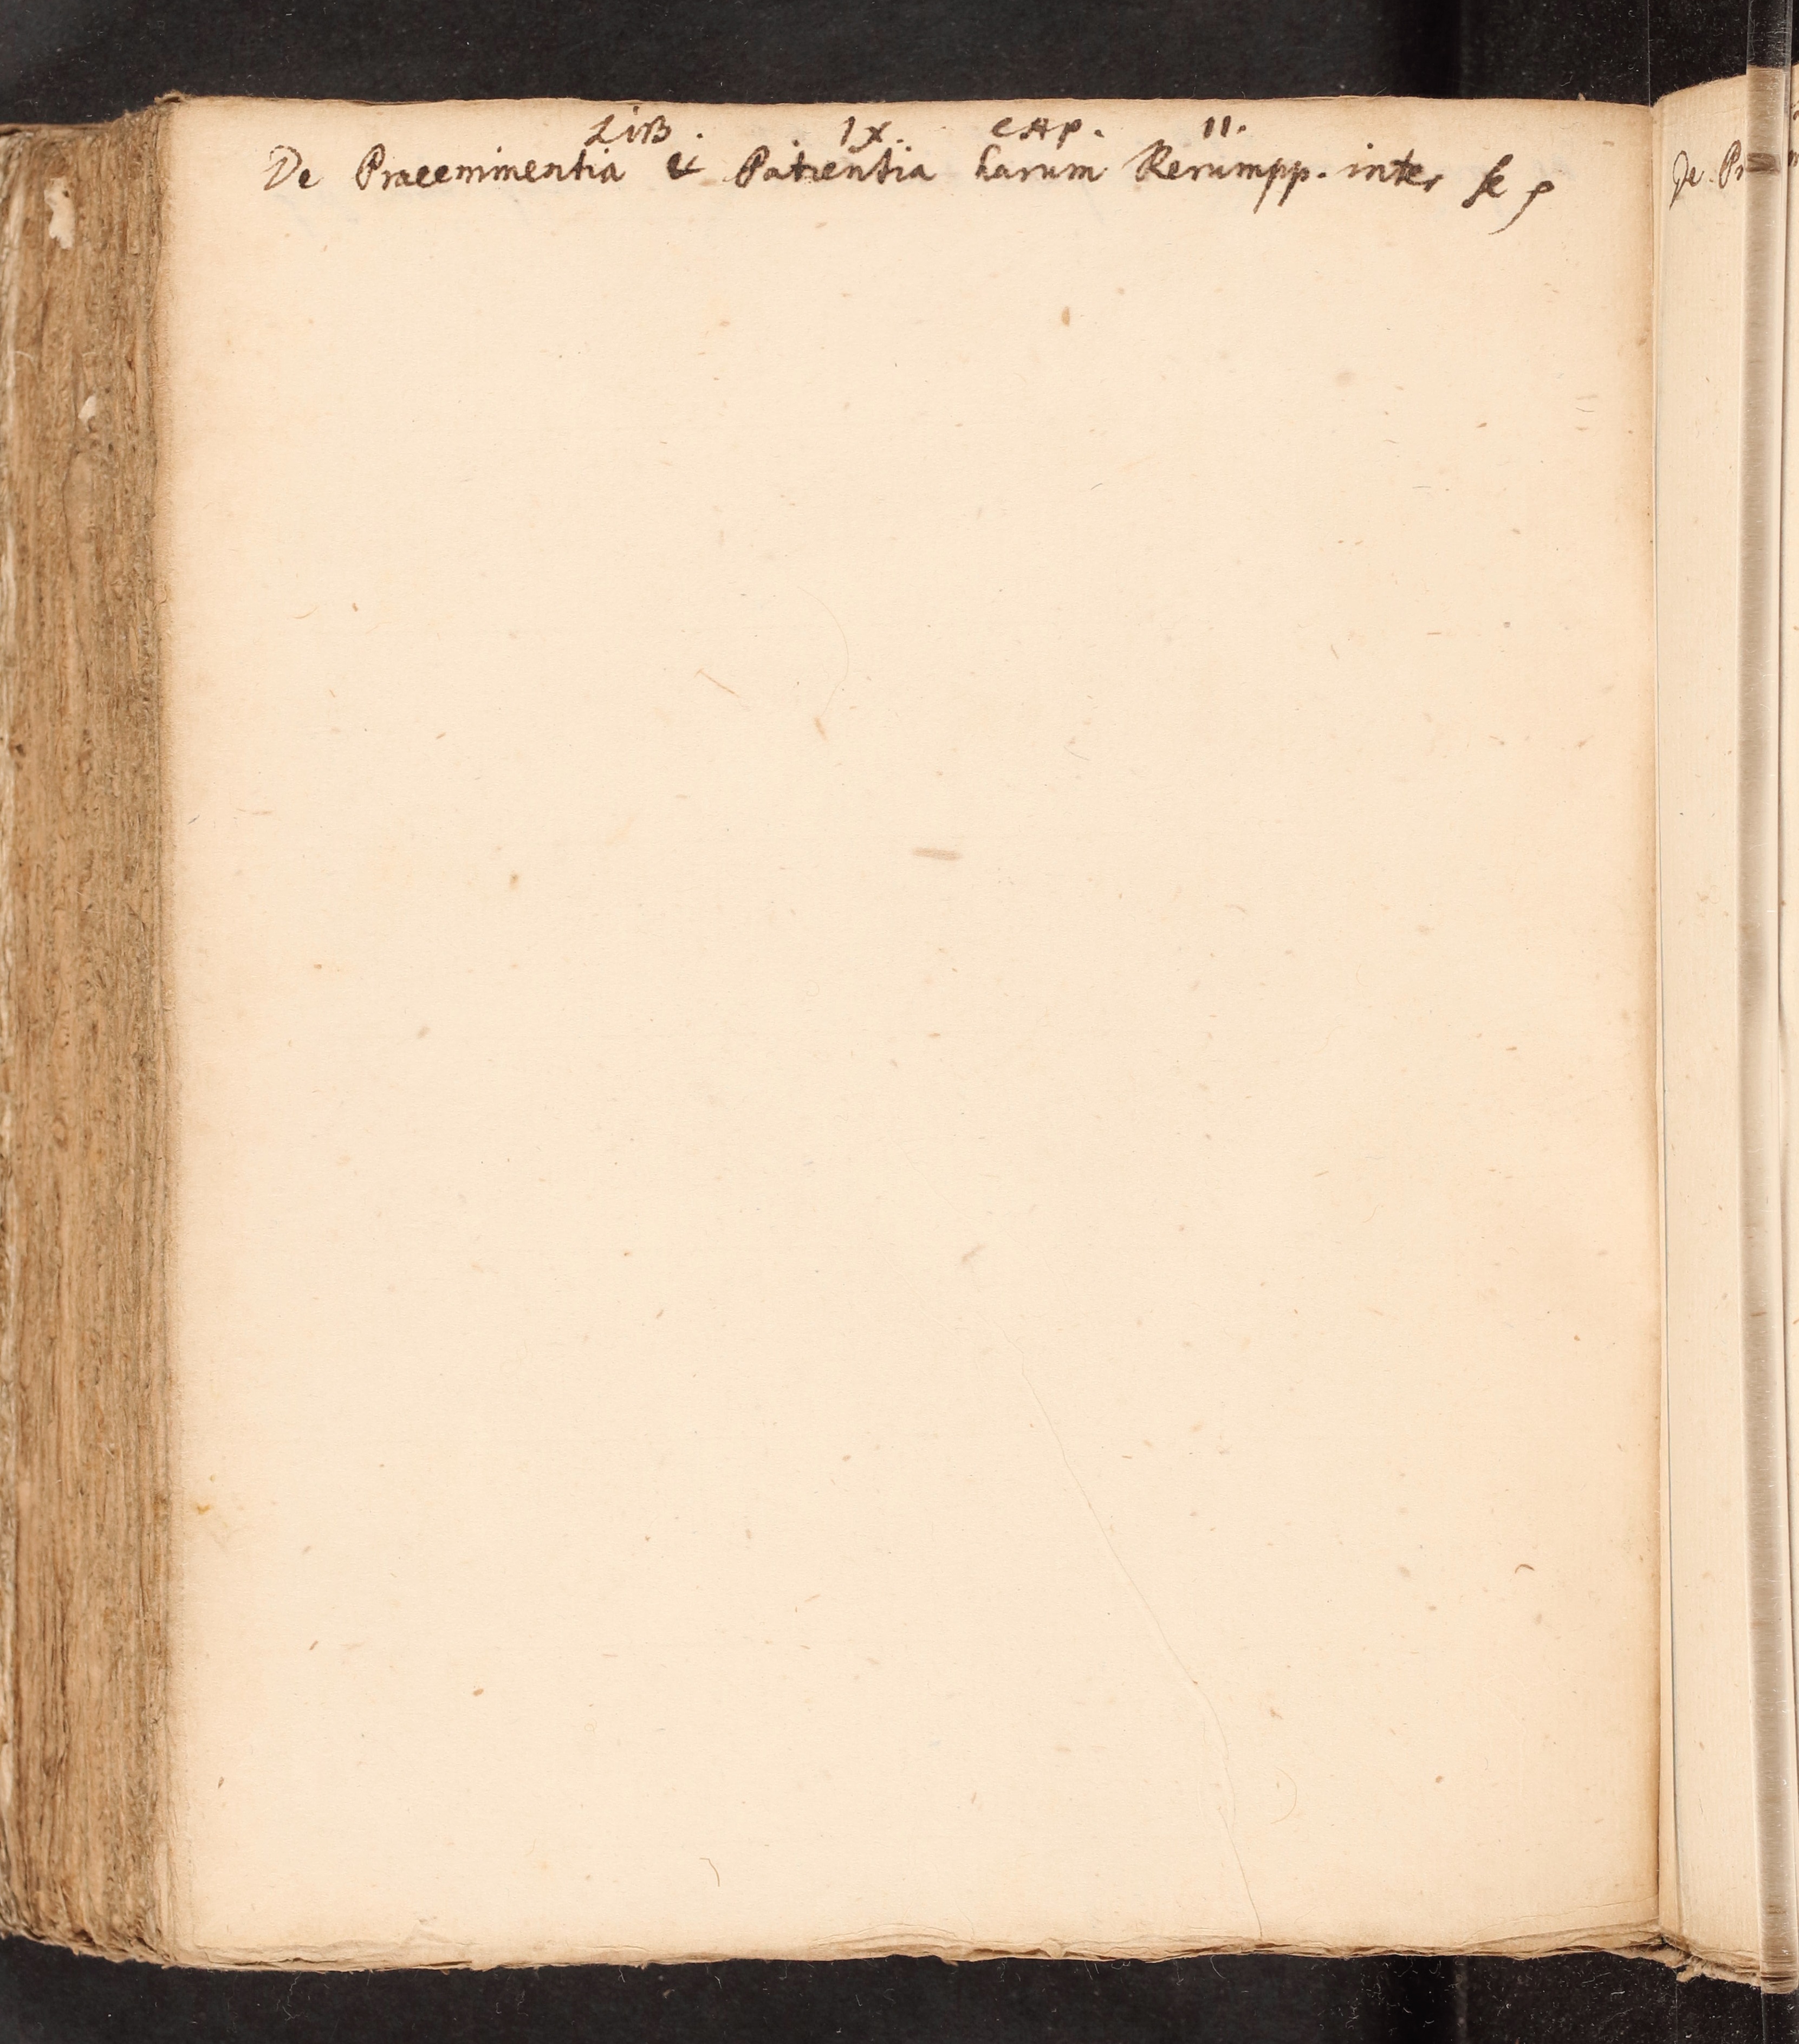 LIB. IX. CAP. II.
De Praeeminentia & Patientia harum Rerumpp. inter se
De Pr